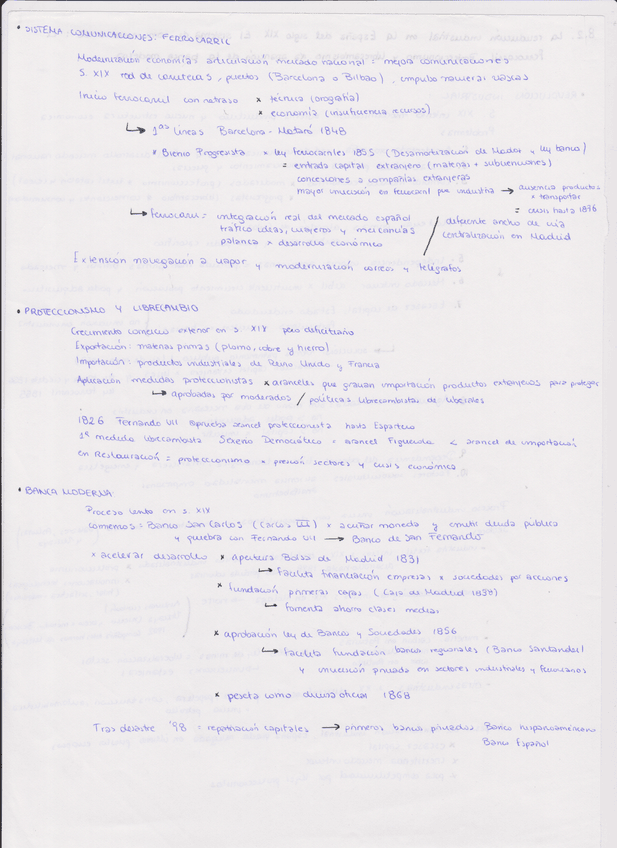 • SISTEMA COMUNICACIONES: FERROCARRIL
Modernización economía: articulación mercado nacional = mejora comunicaciones
S. XIX red de carreteras, puertos (Barcelona o Bilbao), empuje navieras vascas
Inicio ferrocarril con retraso x técnica (orografía)
x económia (insuficiencia recursos)
↳ 1ªs líneas Barcelona - Mataró 1848
x Bienio Progresista x ley ferrocarriles 1855 (Desamortización de Madoz y ley banca)
= entrada capital extranjero (materias + subvenciones)
concesiones a compañías extranjeras
mayor inversión en ferrocarril que industria → ausencia productos
x transportar
= crisis hasta 1876
↳ ferrocarril = integración real del mercado español
tráfico ideas, viajeros y mercancías
palanca x desarrollo económico
/ diferente ancho de vía
centralización en Madrid
Extensión navegación a vapor y modernización correos y telégrafos
• PROTECCIONISMO Y LIBRECAMBIO
Crecimiento comercio exterior en s. XIX pero deficitario
Exportación: materias primas (plomo, cobre y hierro)
Importación: productos industriales de Reino Unido y Francia
Aplicación medidas proteccionistas x aranceles que gravan importación productos extranjeros para proteger
↳ aprobadas por moderados / políticas librecambistas de liberales
1826 Fernando VII aprueba arancel proteccionista hasta Espartero
1ª medida librecambista Sexenio Democrático = arancel Figuerola < arancel de importación
en Restauración = proteccionismo x presión sectores y crisis económica
• BANCA MODERNA
Proceso lento en s. XIX
comienzos: Banco San Carlos (Carlos III) x acuñar moneda y emitir deuda pública
y quiebra con Fernando VII → Banco de San Fernando
x acelerar desarrollo x apertura Bolsa de Madrid 1831
↳ facilita financiación empresas x sociedades por acciones
x fundación primeras cajas (Caja de Madrid 1838)
↳ fomenta ahorro clases medias
x aprobación ley de Bancos y Sociedades 1856
↳ facilita fundación bancos regionales (Banco Santander)
y inversión privada en sectores industriales y ferroviarios
x peseta como divisa oficial 1868
Tras desastre '98 = repatriación capitales → primeros bancos privados Banco hispanoamericano
Banco Español